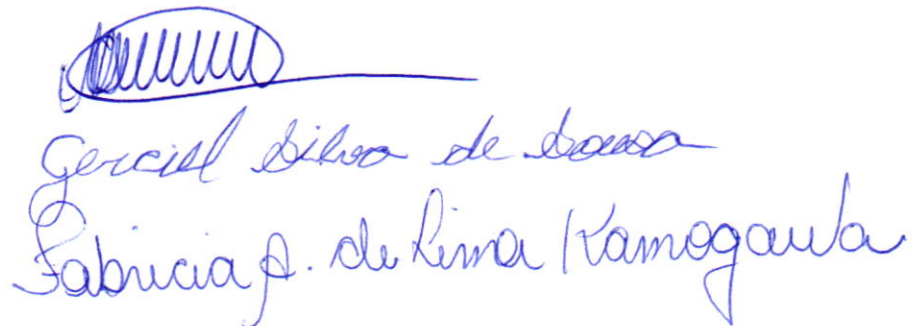 Gerciel Silva de Sousa
Fabricia A. de Lima Kamogawa